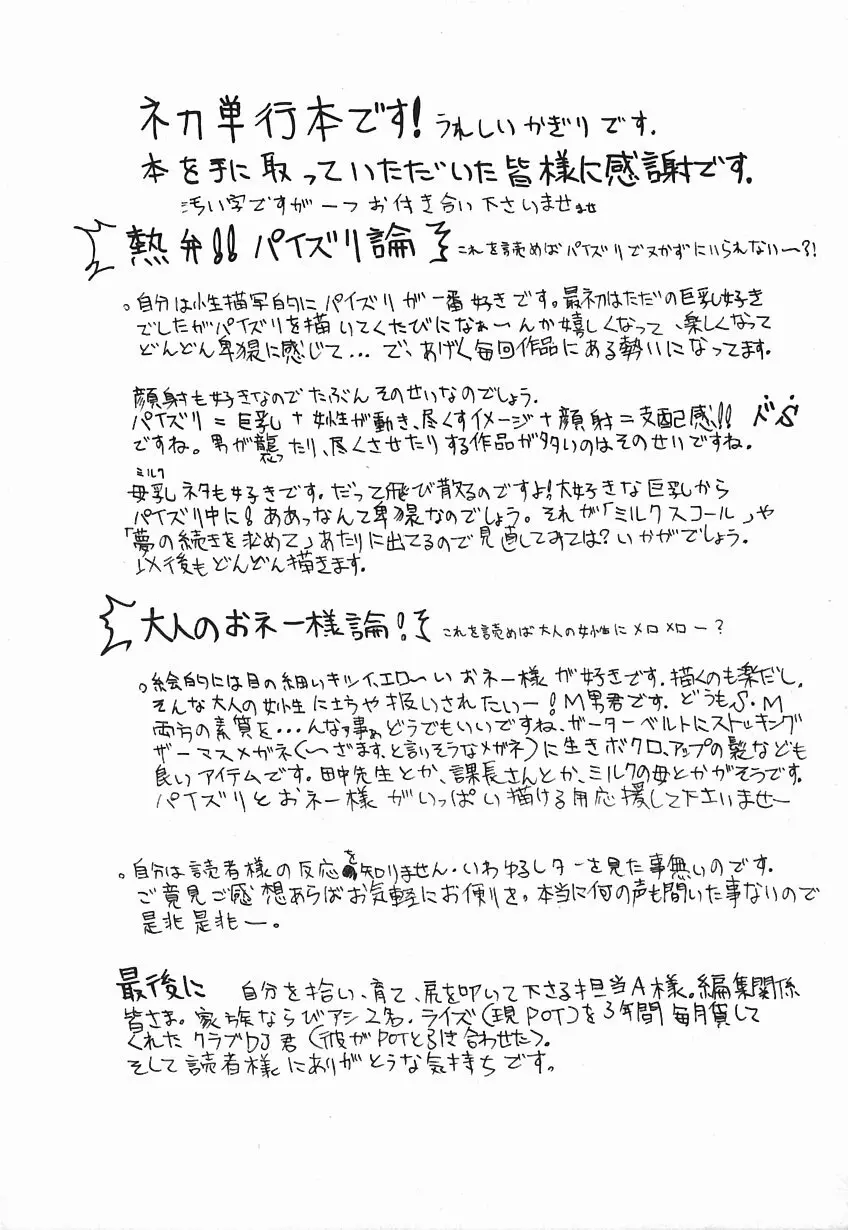 ネカ単行本です! うれしいかぎりです.
本を手に取っていただいた皆様に感謝です.
汚い字ですが一つお付き合い下さいませませ
熱弁!! パイズリ論 これを読めばパイズリでヌかずにいられない〜?!
。自分は性描写的にパイズリが一番好きです。最初はただの巨乳好き
でしたがパイズリを描いてくたびになぁーんか嬉しくなって、楽しくなって
どんどん卑猥に感じて... で、あげく毎回作品にある勢いになってます.
顔射も好きなのでたぶんそのせいなのでしょう.
パイズリ = 巨乳 + 女性が動き、尽くすイメージ + 顔射 = 支配感!! ドS
ですね。男が襲ったり、尽くさせたりする作品が多いのはそのせいですね.
ミルク
母乳ネタも好きです。だって飛び散るのですよ!大好きな巨乳から
パイズリ中に!ああっなんて卑猥なのでしょう。それが「ミルクスコール」や
「夢の続きを求めて」あたりに出てるので見直してみては?いかがでしょう.
以後もどんどん描きます.
大人のおネー様論! これを読めば大人の女性にメロメロー?
。絵的には目の細いキツイ、エロ〜いおネー様が好きです.描くのも楽だし.
そんな大人の女性に扱いされたいー!M男君です. どうもS・M
両方の素質を...んなァ事ァどうでもいいですね、ガーターベルトにストッキング
ザーマスメガネ(〜ざます、と言いそうなメガネ)に生きボクロ、アップの髪なども
良いアイテムです. 田中先生とか、課長さんとか、ミルクの母とかがそうです.
パイズリとおネー様がいっぱい描ける用応援して下さいませー
。自分は読者様の反応を知りません・いわゆるレターを見た事無いのです.
ご意見ご感想あらばお気軽にお便りを, 本当に何の声も聞いた事ないので
是非是非ー。
最後に 自分を拾い、育て、尻を叩いて下さる担当A様。編集関係
皆さま。家族ならびアシ2名. ライズ(現POT)を3年間毎月貸して
くれたクラブDJ君(彼がPOTと引き合わせた).
そして読者様にありがとうな気持ちです。